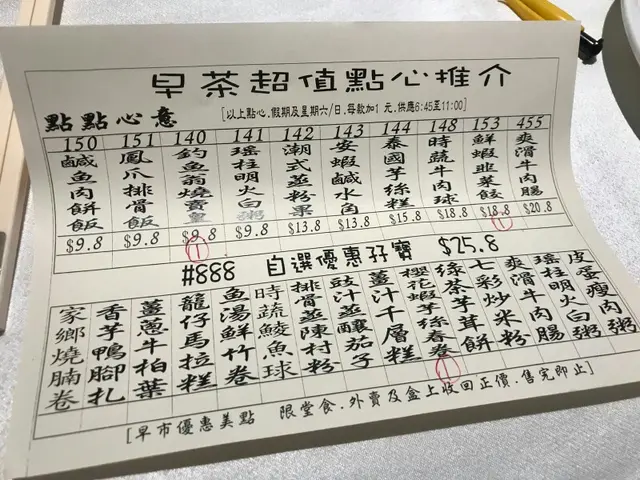 早茶超值點心推介
點點心意 [以上點心.假期及星期六/日.每款加1元.供應6:45至11:00]
150 151 140 141 142 143 144 148 153 455
鹹魚肉餅飯
鳳爪排骨飯
釣魚翁燒賣皇
瑤柱明火白粥
潮式蒸粉果
安蝦鹹水角
泰國芋絲糕
時蔬牛肉球
鮮蝦韭菜餃
爽滑牛肉腸
$9.8 $9.8 $9.8 $9.8 $13.8 $13.8 $15.8 $18.8 $18.8 $20.8
#888 自選優惠孖寶 $25.8
家鄉燒腩卷
香芋鴨腳扎
薑蔥牛柏葉
籠仔馬拉糕
魚湯鮮竹卷
時蔬鯪魚球
排骨蒸陳村粉
豉汁蒸釀茄子
薑汁千層糕
櫻花蝦芋絲春卷
綠茶芋茸餅
七彩炒米粉
爽滑牛肉腸
瑤柱明火白粥
皮蛋瘦肉粥
[早市優惠美點 限堂食.外賣及盒上收回正價.售完即止]